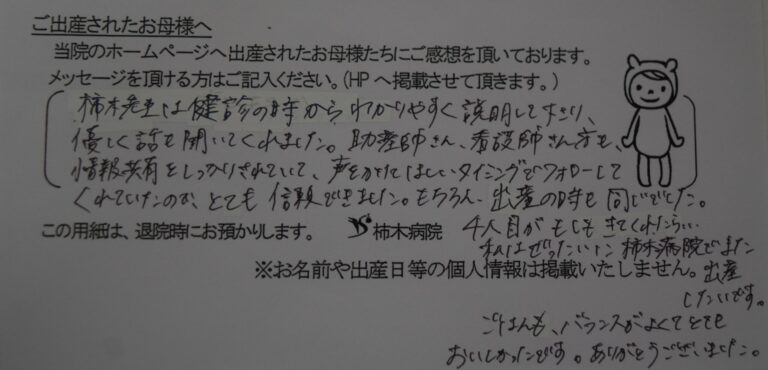 ご出産されたお母様へ
当院のホームページへ出産されたお母様たちにご感想を頂いております。
メッセージを頂ける方はご記入ください。(HPへ掲載させて頂きます。)
柿木先生は健診の時からわかりやすく説明して下さり、
優しく話も聞いてくれました。助産師さん、看護師さん方も、
情報共有をしっかりされていて、声をかけてほしいタイミングでフォローして
くれていたので、とても信頼できました。もちろん、出産の時も同じでした。
この用紙は、退院時にお預かりします。 柿木病院
4人目がもしもきてくれたらい
私はぜったいに柿木病院でまた
※お名前や出産日等の個人情報は掲載いたしません。
出産
したいです。
ごはんも、バランスがよくてとても
おいしかったです。ありがとうございました。